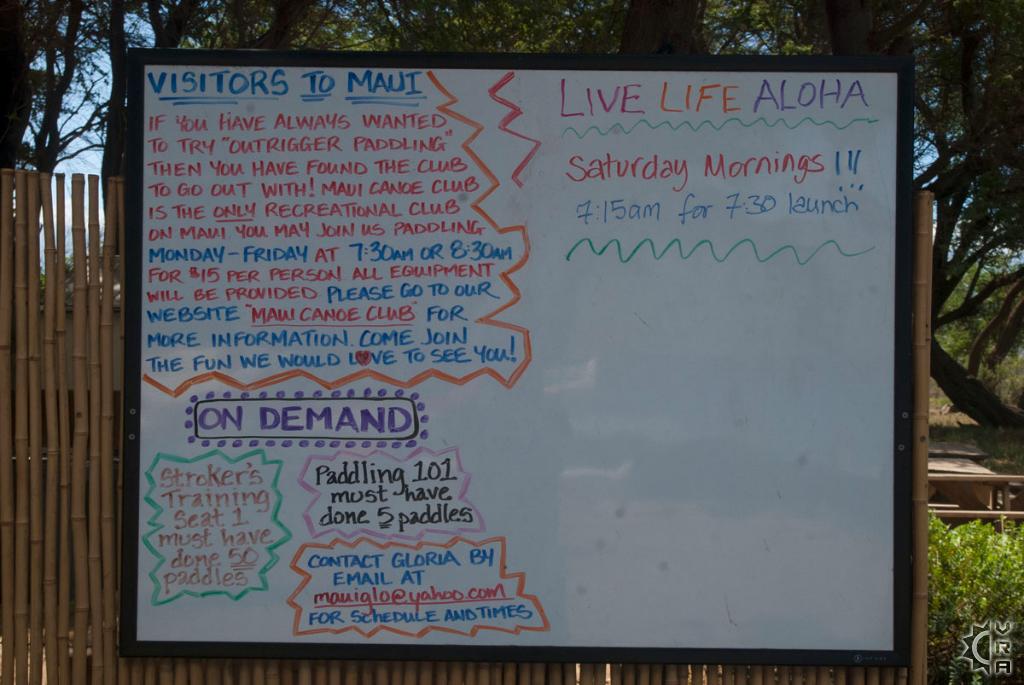 VISITORS TO MAUI
IF YOU HAVE ALWAYS WANTED
TO TRY "OUTRIGGER PADDLING"
THEN YOU HAVE FOUND THE CLUB
TO GO OUT WITH! MAUI CANOE CLUB
IS THE ONLY RECREATIONAL CLUB
ON MAUI. YOU MAY JOIN US PADDLING
MONDAY-FRIDAY AT 7:30AM OR 8:30AM
FOR $15 PER PERSON. ALL EQUIPMENT
WILL BE PROVIDED. PLEASE GO TO OUR
WEBSITE "MAUI CANOE CLUB" FOR
MORE INFORMATION. COME JOIN
THE FUN WE WOULD L♥VE TO SEE YOU!
ON DEMAND
Stroker's
Training
Seat 1
must have
done 50
paddles
Paddling 101
must have
done 5 paddles
CONTACT GLORIA BY
EMAIL AT
mauiglo@yahoo.com
FOR SCHEDULE AND TIMES
LIVE LIFE ALOHA
Saturday Mornings !!!
7:15am for 7:30 launch
VRA